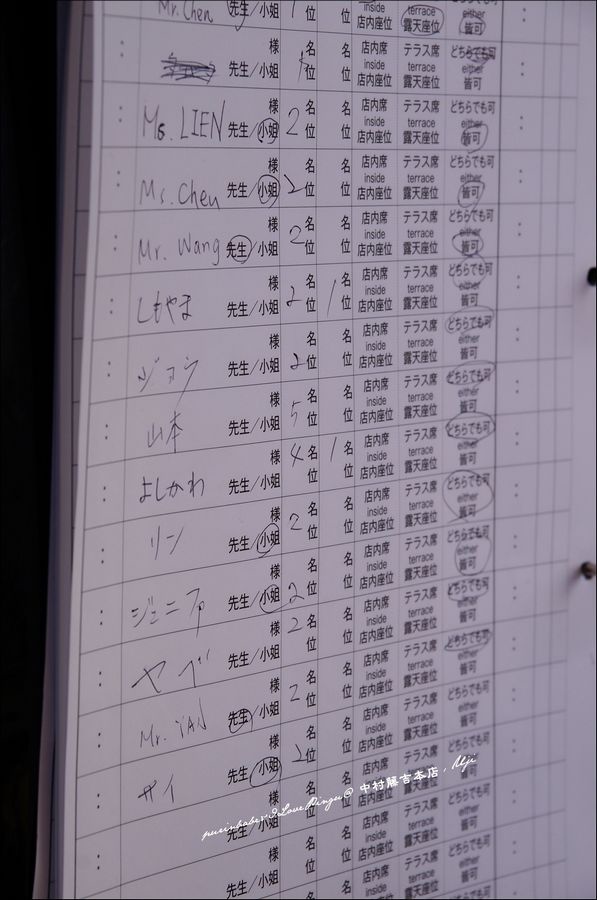 Mr. Chen 先生 1 位 位 inside 店内座位 terrace 露天座位 either 皆可
: 様 先生/小姐 名 位 名 位 店内席 inside 店内座位 テラス席 terrace 露天座位 どちらでも可 either 皆可 :
: Ms. LIEN 様 先生/小姐 2 名 位 名 位 店内席 inside 店内座位 テラス席 terrace 露天座位 どちらでも可 either 皆可 :
: Ms. Chen 様 先生/小姐 2 名 位 名 位 店内席 inside 店内座位 テラス席 terrace 露天座位 どちらでも可 either 皆可 :
: Mr. Wang 様 先生/小姐 2 名 位 名 位 店内席 inside 店内座位 テラス席 terrace 露天座位 どちらでも可 either 皆可 :
: しもやま 様 先生/小姐 2 名 位 1 名 位 店内席 inside 店内座位 テラス席 terrace 露天座位 どちらでも可 either 皆可 :
: ジョウ 様 先生/小姐 2 名 位 名 位 店内席 inside 店内座位 テラス席 terrace 露天座位 どちらでも可 either 皆可 :
: 山本 様 先生/小姐 5 名 位 名 位 店内席 inside 店内座位 テラス席 terrace 露天座位 どちらでも可 either 皆可 :
: よしかわ 様 先生/小姐 4 名 位 1 名 位 店内席 inside 店内座位 テラス席 terrace 露天座位 どちらでも可 either 皆可 :
: リン 様 先生/小姐 2 名 位 名 位 店内席 inside 店内座位 テラス席 terrace 露天座位 どちらでも可 either 皆可 :
: ジェニファ 様 先生/小姐 2 名 位 名 位 店内席 inside 店内座位 テラス席 terrace 露天座位 どちらでも可 either 皆可 :
: ヤベ 様 先生/小姐 2 名 位 名 位 店内席 inside 店内座位 テラス席 terrace 露天座位 どちらでも可 either 皆可 :
: Mr. YAN 様 先生/小姐 2 名 位 名 位 店内席 inside 店内座位 テラス席 terrace 露天座位 どちらでも可 either 皆可 :
: サイ 様 先生/小姐 2 名 位 名 位 店内席 inside 店内座位 テラス席 terrace 露天座位 どちらでも可 either 皆可 :
purinbaby*ILovePingu@ 中村藤吉本店，Uji
様 先生/小姐 名 位 名 位 店内席 inside 店内座位 テラス席 terrace 露天座位 どちらでも可 either 皆可 :
: 様 先生/小姐 名 位 名 位 店内席 inside 店内座位 テラス席 terrace 露天座位 どちらでも可 either 皆可 :